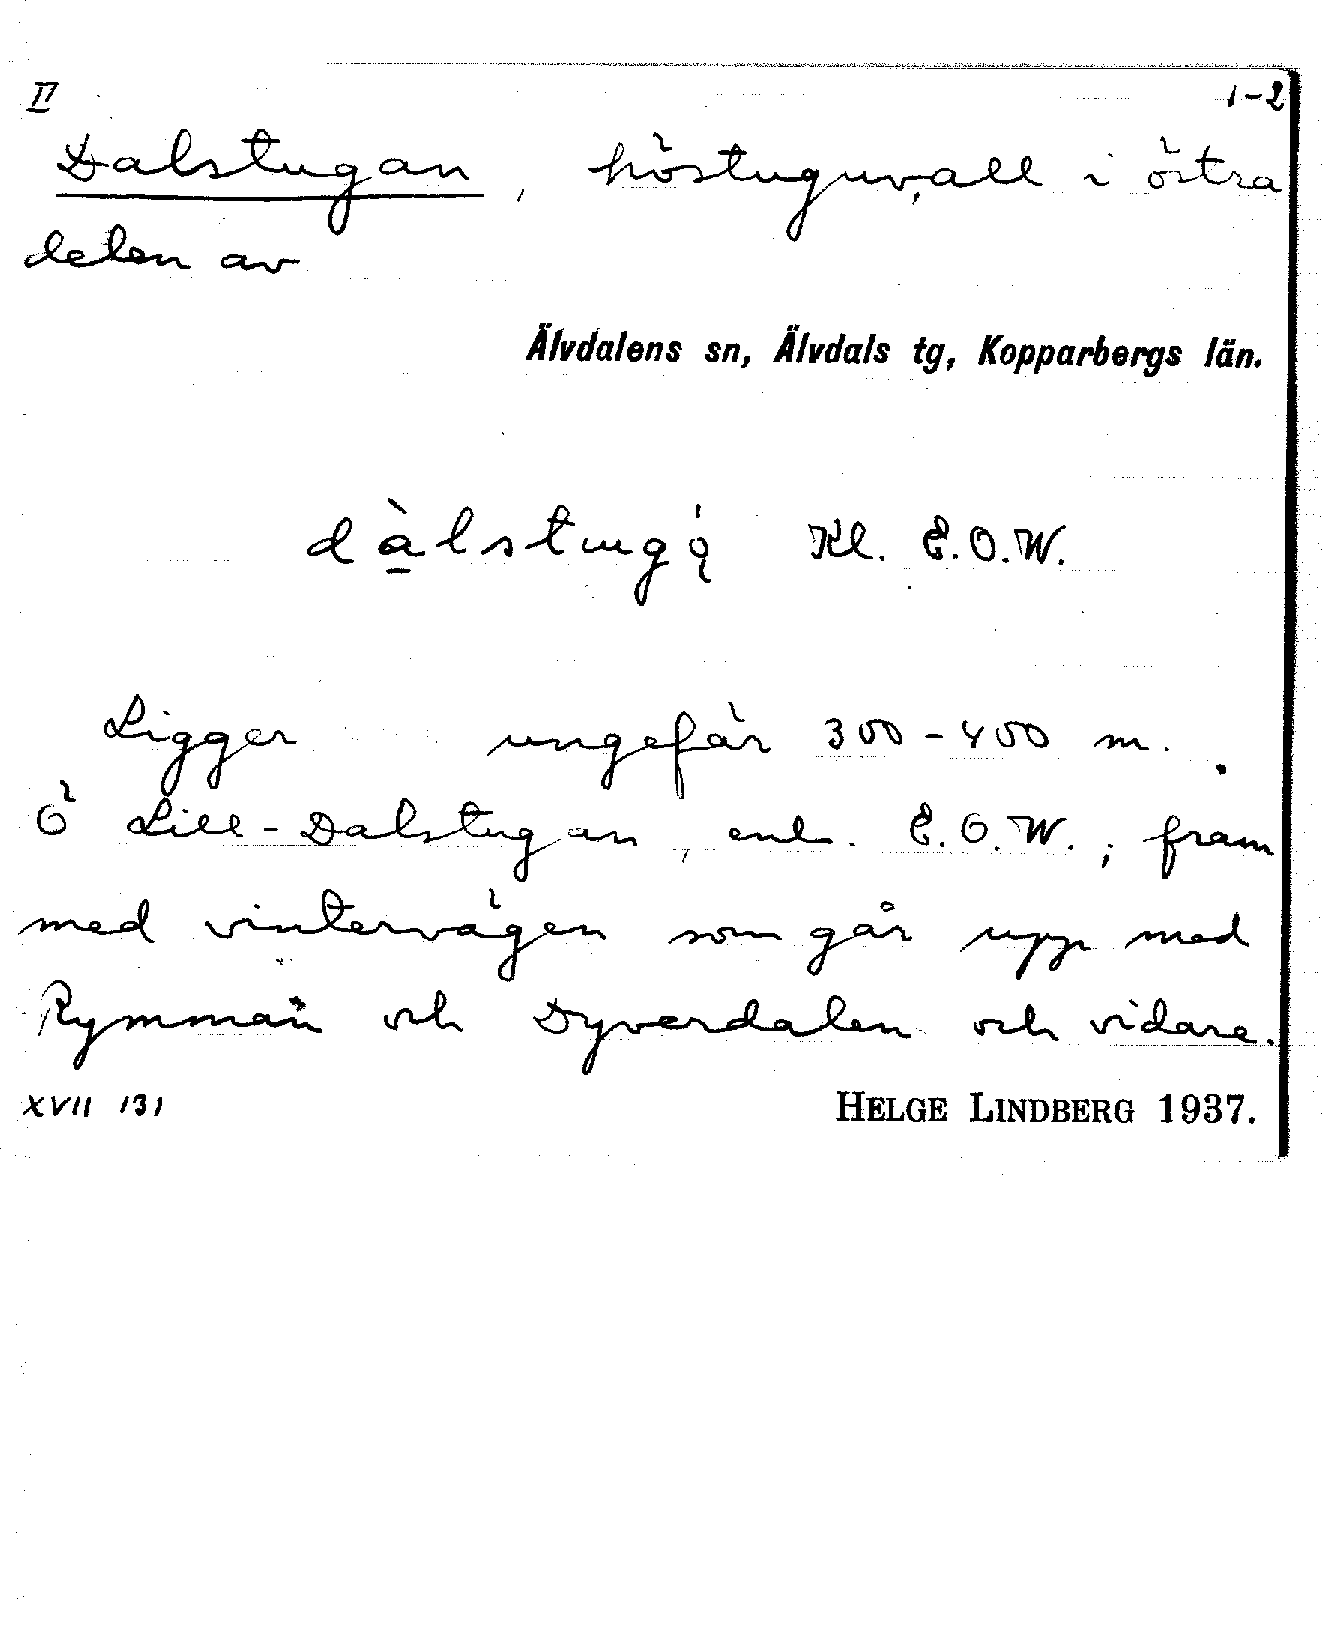 II 1-2
Dalstugan, höstuguvall i östra
delen av
Älvdalens sn, Älvdals tg, Kopparbergs län.
Kl. E.O.W.
Ligger ungefär 300-400 m.
Ö Lill-Dalstugan, enl. E.O.W.; fram
med vintervägen som går upp med
Rymman och Dyverdalen och vidare.
XVII 131 HELGE LINDBERG 1937.